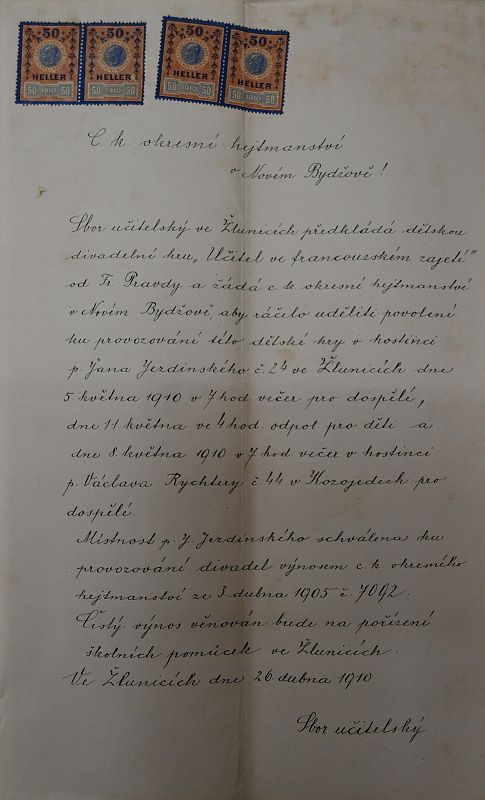 50 50
HELLER HELLER
50 1910 50 50 1910 50
50 50
HELLER HELLER
50 1910 50 50 1910 50
C. k. okresní hejtmanství
v Novém Bydžově!
Sbor učitelský ve Žlunicích předkládá dětskou
divadelní hru „Učitel ve francouzském zajetí"
od Fr. Pravdy a žádá c. k. okresní hejtmanství
v Novém Bydžově, aby ráčilo uděliti povolení
ku provozování této dětské hry v hostinci
p. Jana Jezdinského č. 24 ve Žlunicích dne
5. května 1910 v 7 hod večer pro dospělé,
dne 11. května ve 4 hod. odpol pro děti a
dne 8. května 1910 v 7 hod večer v hostinci
p. Václava Rychtery č 44 v Kozojedech pro
dospělé.
Místnost p. J. Jezdinského schválena ku
provozování divadel výnosem c. k. okresního
hejtmanství ze 3. dubna 1905 č. 7092.
Čistý výnos věnován bude na pořízení
školních pomůcek ve Žlunicích.
Ve Žlunicích dne 26. dubna 1910
Sbor učitelský